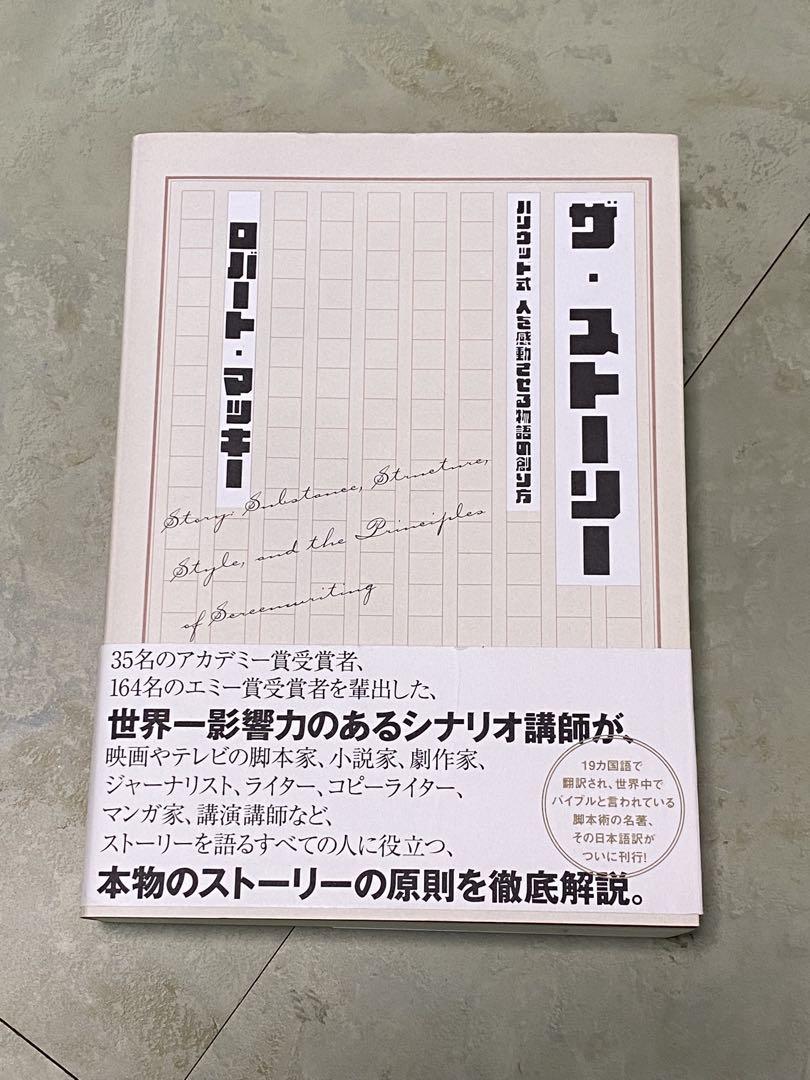 ザ・ストーリー
ハリウッド式 人を感動させる物語の創り方
ロバート・マッキー
Story: Substance, Structure,
Style, and the Principles
of Screenwriting
35名のアカデミー賞受賞者、
164名のエミー賞受賞者を輩出した、
世界一影響力のあるシナリオ講師が、
映画やテレビの脚本家、小説家、劇作家、
ジャーナリスト、ライター、コピーライター、
マンガ家、講演講師など、
ストーリーを語るすべての人に役立つ、
本物のストーリーの原則を徹底解説。
19カ国語で
翻訳され、世界中で
バイブルと言われている
脚本術の名著、
その日本語訳が
ついに刊行!